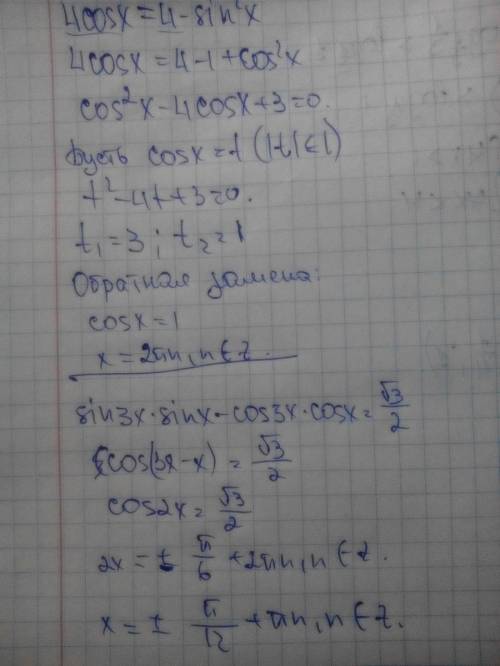 4cosx = 4 - sin²x
4cosx = 4 - 1 + cos²x
cos²x - 4cosx + 3 = 0.
Пусть cosx = t (|t| ≤ 1)
t² - 4t + 3 = 0.
t₁ = 3 ; t₂ = 1
Обратная замена:
cosx = 1
x = 2πn, n ∈ Z.
sin3x · sinx - cos3x · cosx = √3/2
cos(3x - x) = √3/2
cos2x = √3/2
2x = ± π/6 + 2πn, n ∈ Z.
x = ± π/12 + πn, n ∈ Z.